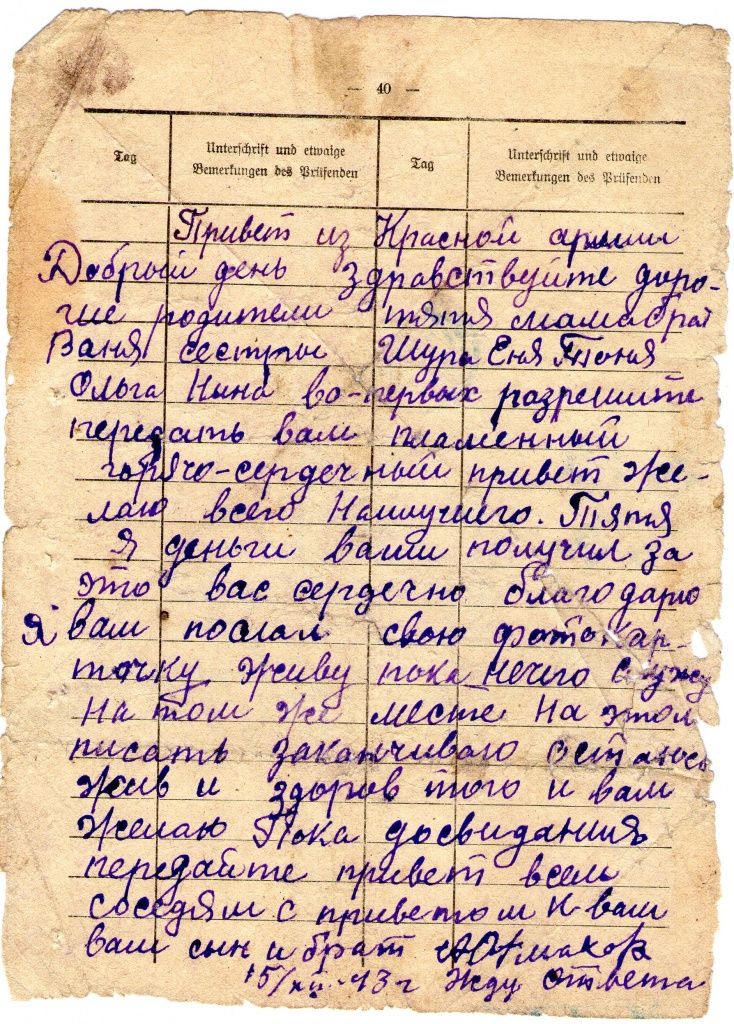 — 40 —
Tag Unterschrift und etwaige Tag Unterschrift und etwaige
Bemerkungen des Prüfenden Bemerkungen des Prüfenden
Привет из Красной армии
Добрый день здравствуйте доро-
гие родители тятя мама брат
Ваня сестры Шура Еня Тоня
Ольга Нина во-первых разрешите
передать вам пламенный
горячо-сердечный привет же-
лаю всего Наилучшего. Тятя
я деньги ваши получил за
это вас сердечно благодарю
Я вам послал свою фотокар-
точку живу пока нечего служу
на том же месте На этом
писать заканчиваю остаюсь
жив и здоров того и вам
желаю Пока досвидания
передайте привет всем
соседям с приветом к вам
ваш сын и брат
15/XII-43 г Жду ответа